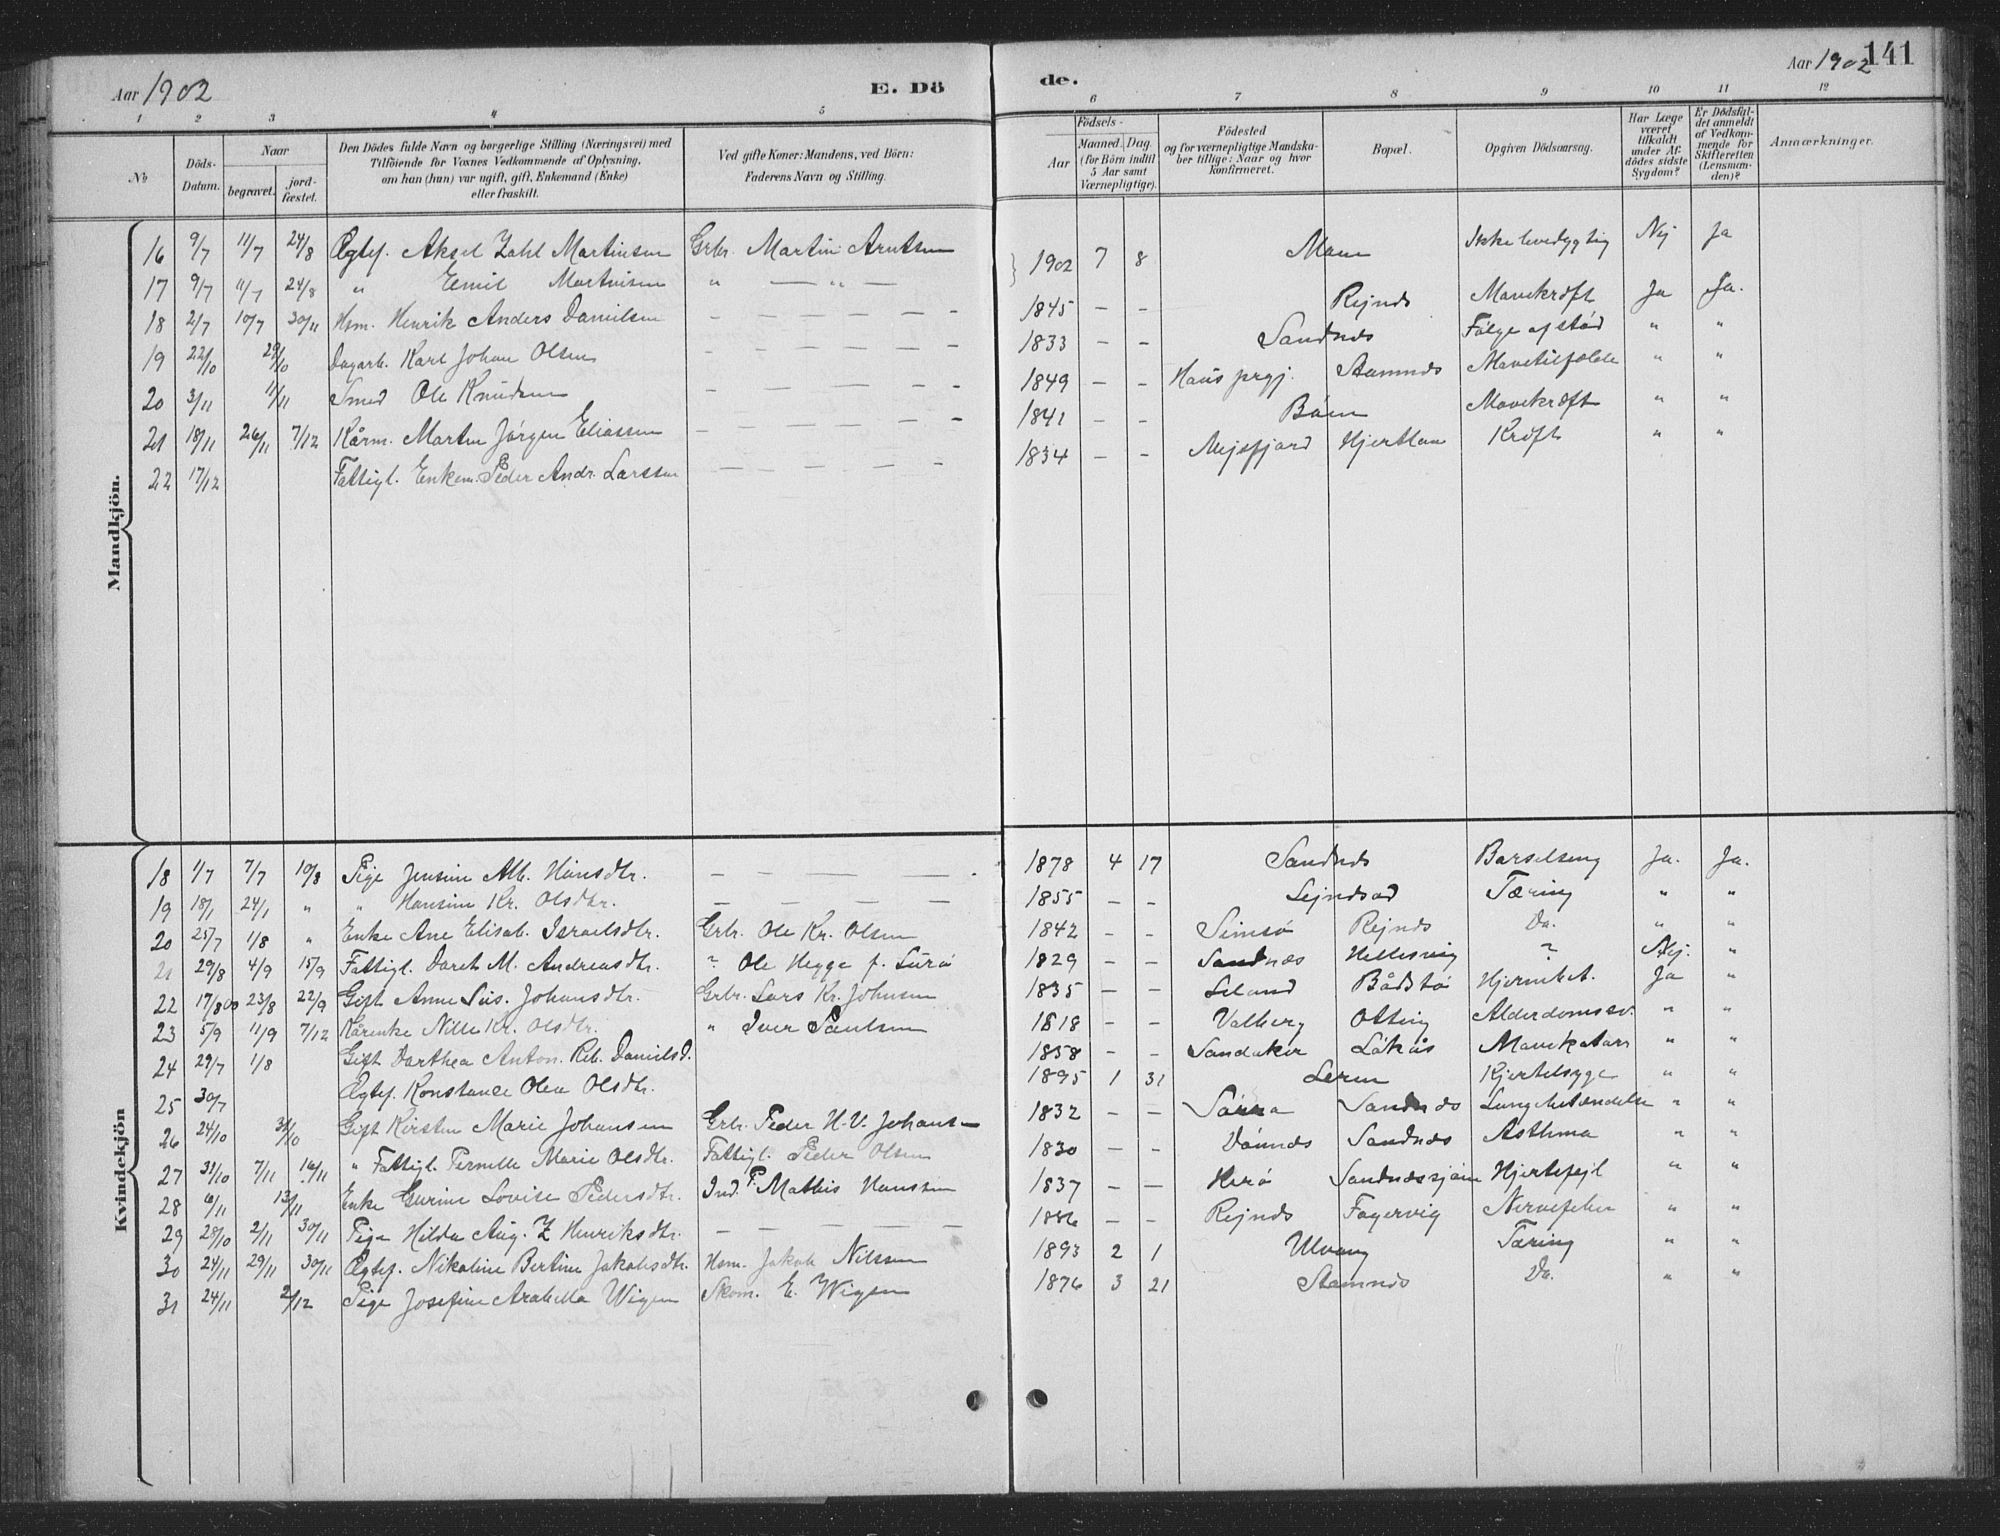 Aar 1902
E. Dö
de.
Aar 1902
141
1 2 3 4 5 6 7 8 9 10 11 12
No
Döds-
Datum.
Naar
begravet.
jord-
fæstet.
Den Dödes fulde Navn og borgerlige Stilling (Næringsvei) med
Tilföiende for Voxnes Vedkommende af Oplysning,
om han (hun) var ugift, gift, Enkemand (Enke)
eller fraskilt.
Ved gifte Koner: Mandens, ved Börn:
Faderens Navn og Stilling.
Födsels-
Aar
Maaned. Dag.
(for Börn indtil
5 Aar samt
Værnepligtige).
Födested
og for værnepligtige Mandska-
ber tillige: Naar og hvor
konfirmeret.
Bopæl.
Opgiven Dödsaarsag.
Har Læge
været
tilkaldt
under Af-
dödes sidste
Sygdom?
Er Dödsfal-
det anmeldt
af Vedkom-
mende for
Skifteretten
(Lensman-
den)?
Anmærkninger.
Mandkjön.
16 9/7 11/7 24/8 Ægtef. Aksel Zahl Martinsen Grbr. Martin Arntsen } 1902 7 8 Ikke levedygtig Nej Ja
17 9/7 11/7 24/8 " Emil Martinsen " — " —
18 2/7 10/7 30/11 Hsm. Henrik Anders Danielsen — — — — — — 1845 — — Rejnæs Mavekræft Ja Ja.
19 22/10 29/10 Dagarb. Karl Johan Olsen — — — — — — 1833 — — Sandnæs Følge af stød " "
20 3/11 11/11 Smed Ole Knudsen — — — — — 1849 — — Haus prgj. Stamnæs Mavetilfælde " "
21 18/11 26/11 7/12 Kårm. Martin Jørgen Eliassen — — — — — — 1841 — — Mavekræft " "
22 17/12 Fattigl. Enkem. Peder Andr. Larssen — — — — — — 1834 — — Hjertland Kræft " "
Kvindekjön
18 1/7 7/7 10/8 Pige Jensine Alb. Hansdtr. — — — — — 1878 4 17 Sandnæs Barselseng Ja. Ja.
19 18/1 24/1 " " Hansine Kr. Olsdtr. — — — — 1855 — — Tæring " "
20 25/7 1/8 " Enke Ane Elisab. Israelsdtr. Grbr. Ole Kr. Olsen 1842 — — Rejnæs Do. " "
21 29/8 4/9 15/9 Fattigl. Doret M. Andreasdtr. ? Ole Hegge f. Lurø 1829 — — Sandnæs Hellesvig ? Nej. "
22 17/8 23/8 22/9 Gift Anne Sus. Johansdtr. Grbr. Lars Kr. Johnsen 1835 — — Leland Bådstø Hjernebet. Ja "
23 5/9 11/9 7/12 Kårenke Nille Kr. Olsdtr. " Iver Paulsen 1818 — — Valberg Otting Alderdomssv. " "
24 29/7 1/8 Gift Dorthea Anton. Reb. Danielsd. 1858 — — Sandaker Løkås Mavekatarr " "
25 30/7 Ægtef. Konstance Olea Olsdtr. 1895 1 31 Kjertelsyge " "
26 24/10 31/10 Gift Kirsten Marie Johansen Grbr. Peder H. V. Johansen 1832 — — Sandnæs Lungebetændelse " "
27 31/10 7/11 16/11 " Fattigl. Pernille Marie Olsdtr. Fattigl. Peder Olsen 1830 — — Dønnæs Sandnæs Asthma " "
28 6/11 13/11 Enke Gurine Lovise Pedersdtr. Ind. P. Mathis Hanssen 1837 — — Herø Sandnæssjøen Hjertefejl " "
29 28/10 2/11 30/11 Pige Hilda Aug. Z Henriksdtr. — — — — — 1886 — — Rejnæs Fagervig Nervefeber " "
30 24/11 29/11 30/11 Ægtef. Nikoline Bertine Jakobsdtr. Hsm. Jakob Nilssen 1893 2 1 Ulvang Tæring " "
31 24/11 2/12 Pige Josefine Arabella Wigen Skom. E. Wigen 1876 3 21 Stamnæs Do. " "